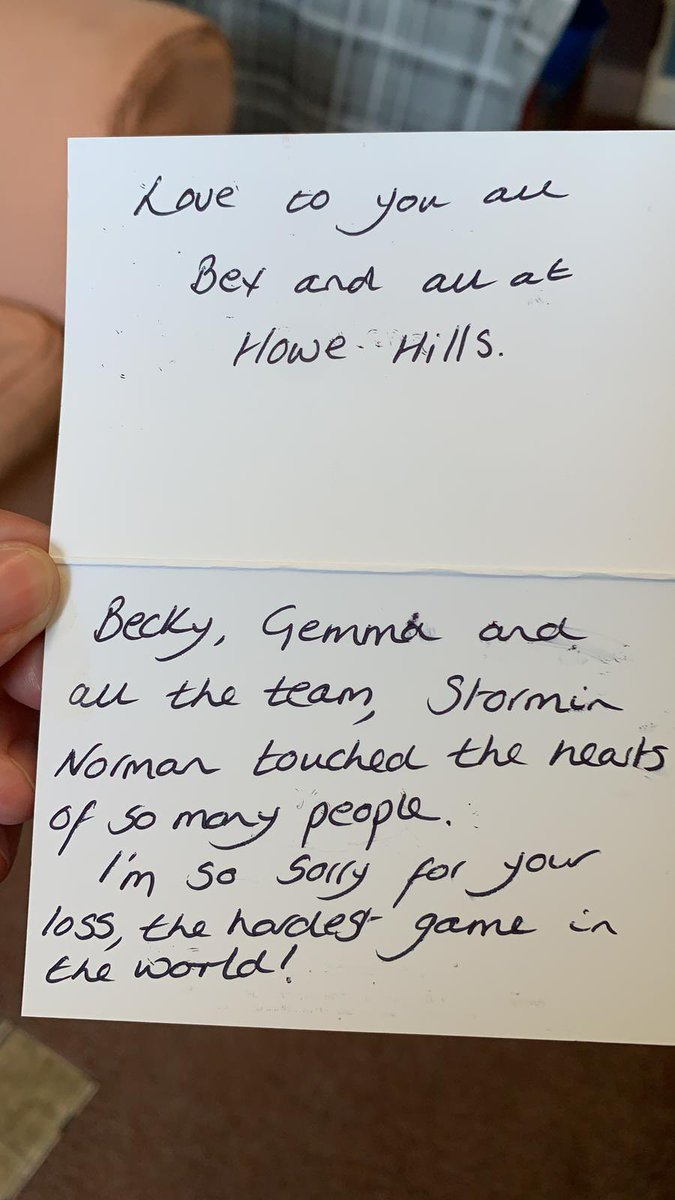 Love to you all
Bex and all at
Howe Hills.
Becky, Gemma and
all the team, Stormin
Norman touched the hearts
of so many people.
I'm so sorry for your
loss, the hardest game in
the world!